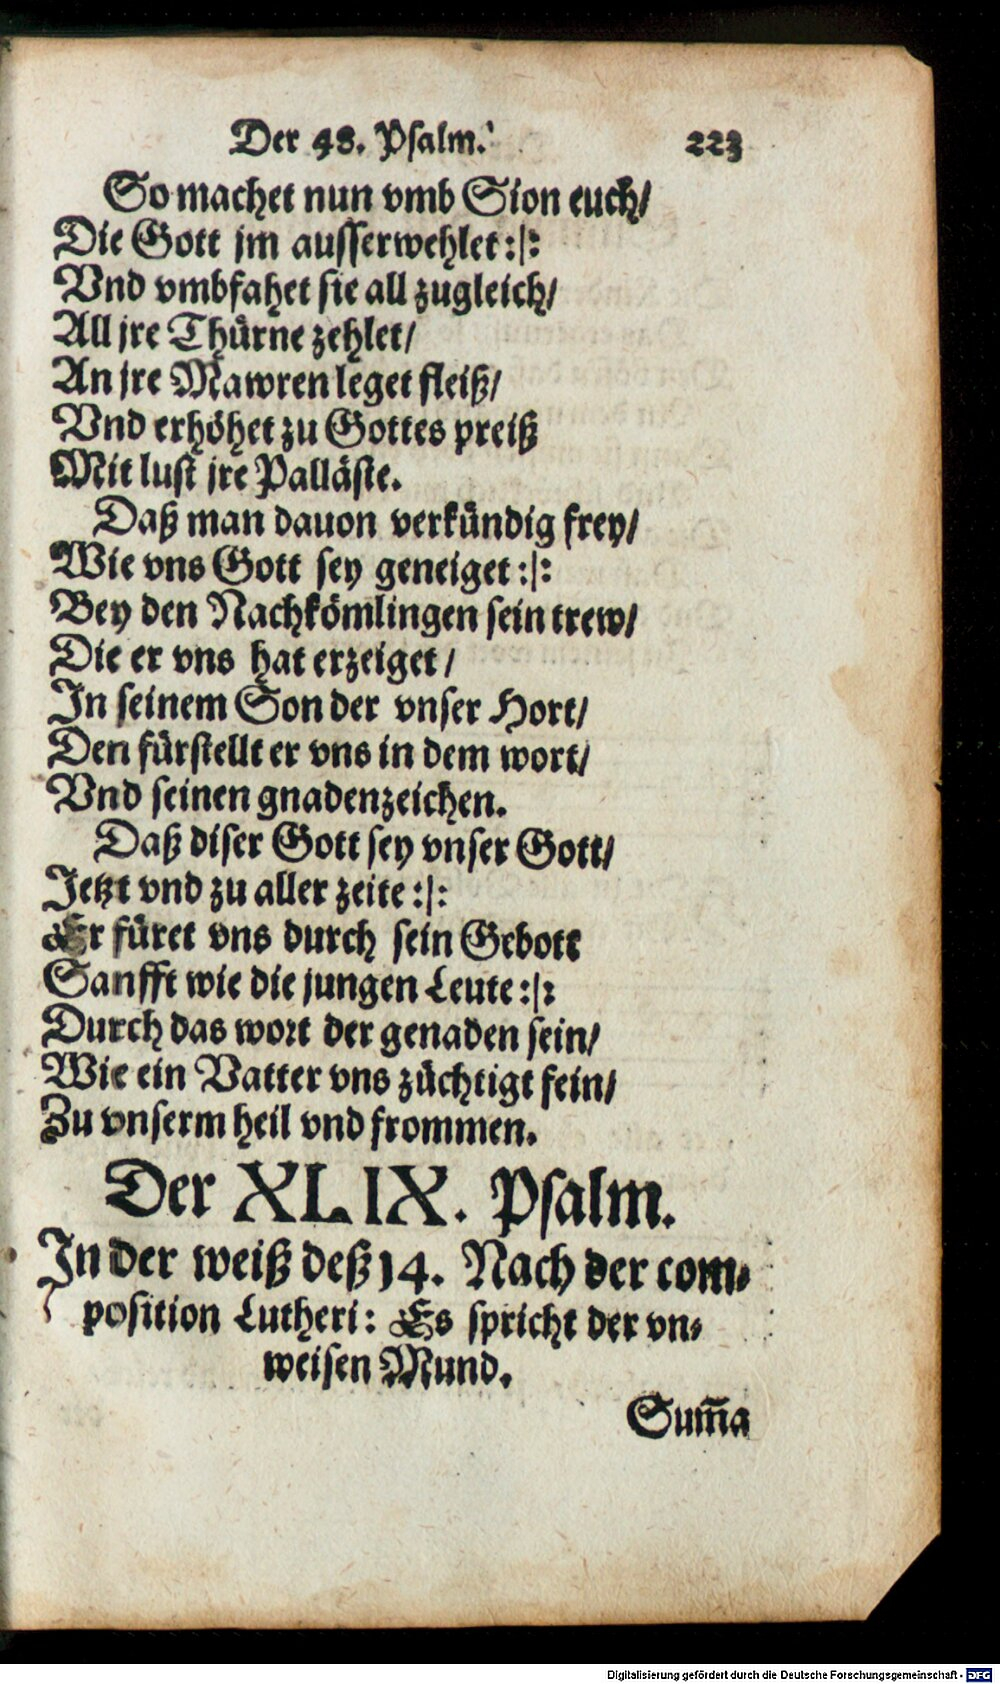 Der 48. Psalm. 223
So machet nun vmb Sion euch/
Die Gott jm ausserwehlet :|:
Vnd vmbfahet sie all zugleich/
All jre Thürne zehlet/
An jre Mawren leget fleiß/
Vnd erhöhet zu Gottes preiß
Mit lust jre Palläste.
Daß man dauon verkündig frey/
Wie vns Gott sey geneiget :|:
Bey den Nachkömlingen sein trew/
Die er vns hat erzeiget /
In seinem Son der vnser Hort/
Den fürstellt er vns in dem wort/
Vnd seinen gnadenzeichen.
Daß diser Gott sey vnser Gott/
Jetzt vnd zu aller zeite :|:
Er füret vns durch sein Gebott
Sanfft wie die jungen Leute :|:
Durch das wort der genaden sein/
Wie ein Vatter vns züchtigt fein/
Zu vnserm heil vnd frommen.
Der XLIX. Psalm.
In der weiß deß 14. Nach der com-
position Lutheri: Es spricht der vn-
weisen Mund.
Sum̄a
Digitalisierung gefördert durch die Deutsche Forschungsgemeinschaft - DFG